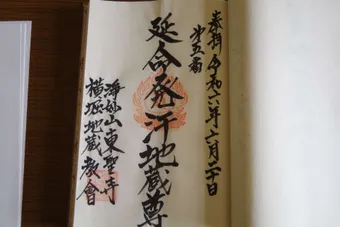 奉拝 令和六年六月二十日
第五番
延命発汗地蔵尊
海妙山東聖寺
横堀地蔵教會